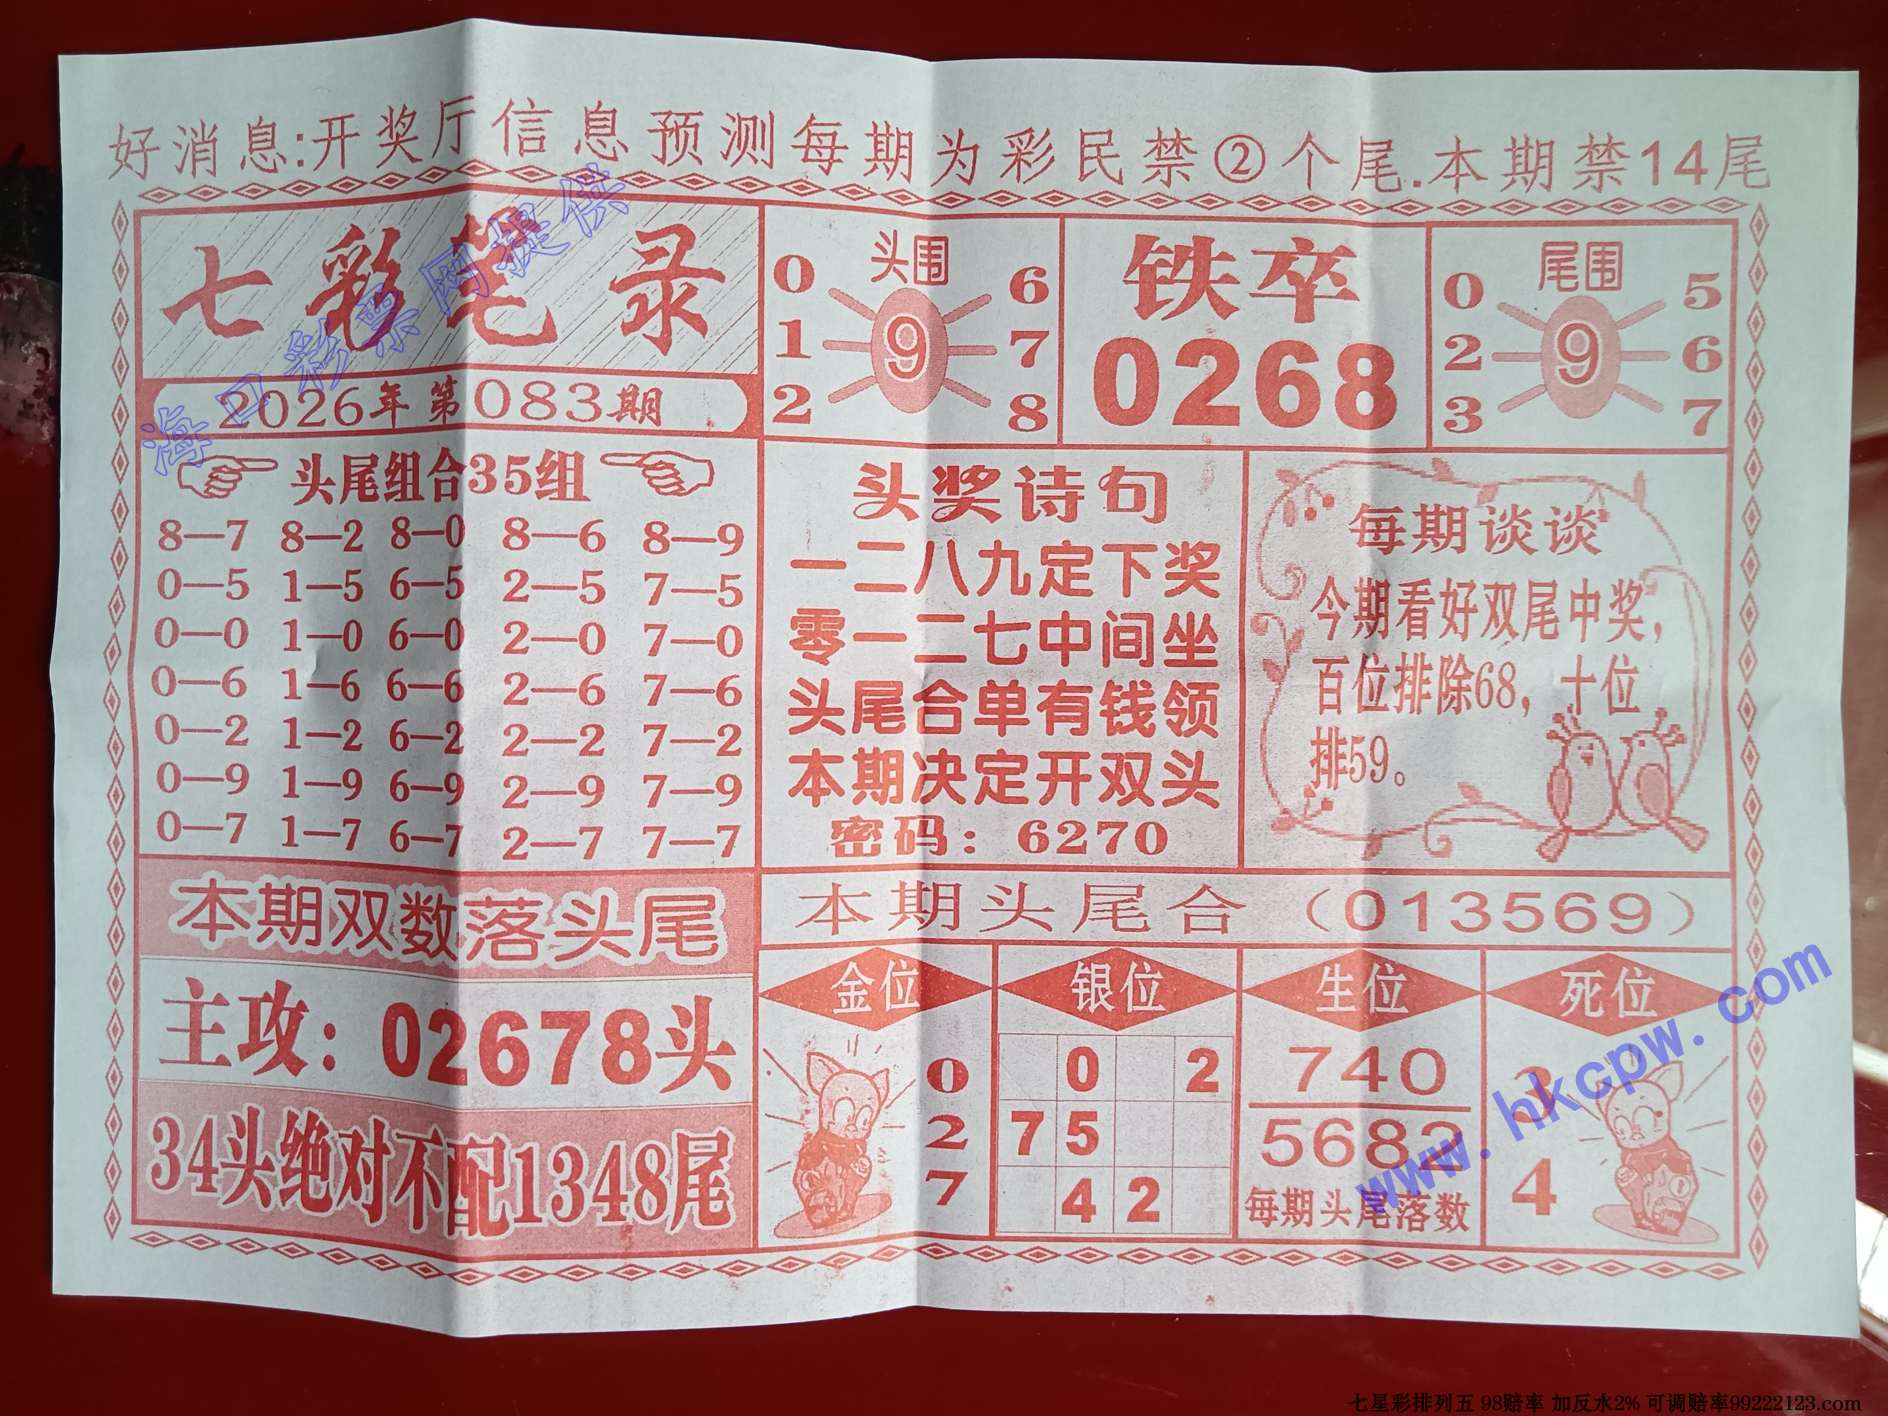 好消息:开奖厅信息预测每期为彩民禁②个尾.本期禁14尾
七彩笔录
2026年第083期
头围
0 6
1 9 7
2 8
铁卒
0268
尾围
0 5
2 9 6
3 7
头尾组合35组
8—7 8—2 8—0 8—6 8—9
0—5 1—5 6—5 2—5 7—5
0—0 1—0 6—0 2—0 7—0
0—6 1—6 6—6 2—6 7—6
0—2 1—2 6—2 2—2 7—2
0—9 1—9 6—9 2—9 7—9
0—7 1—7 6—7 2—7 7—7
头奖诗句
一二八九定下奖
零一二七中间坐
头尾合单有钱领
本期决定开双头
密码：6270
每期谈谈
今期看好双尾中奖，
百位排除68，十位
排59。
本期双数落头尾
主攻：02678头
34头绝对不配1348尾
本期头尾合（013569）
金位
0
2
7
银位
0 2
7 5
4 2
生位
740
5682
每期头尾落数
死位
3
4
海口彩票网提供
www.hkcpw.com
七星彩排列五 98赔率 加反水2% 可调赔率99222123.com